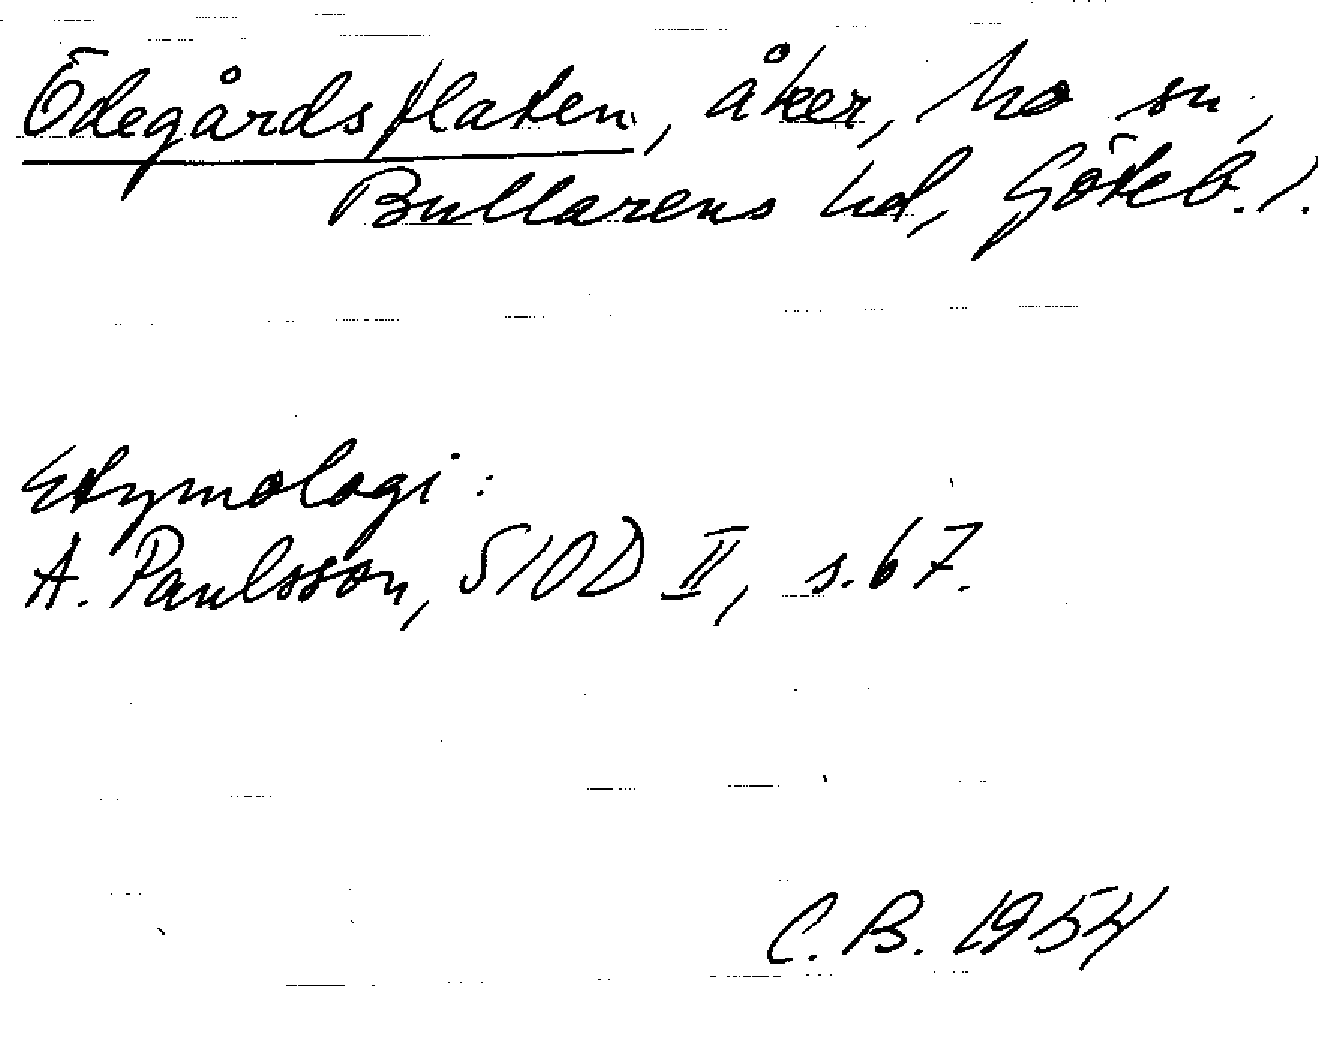 Ödegårdsplaten, åker, ho sn,
Bullarens hd, Göteb. l.
Etymologi:
A. Paulsson, SIOD II, s. 67.
C. B. 1954